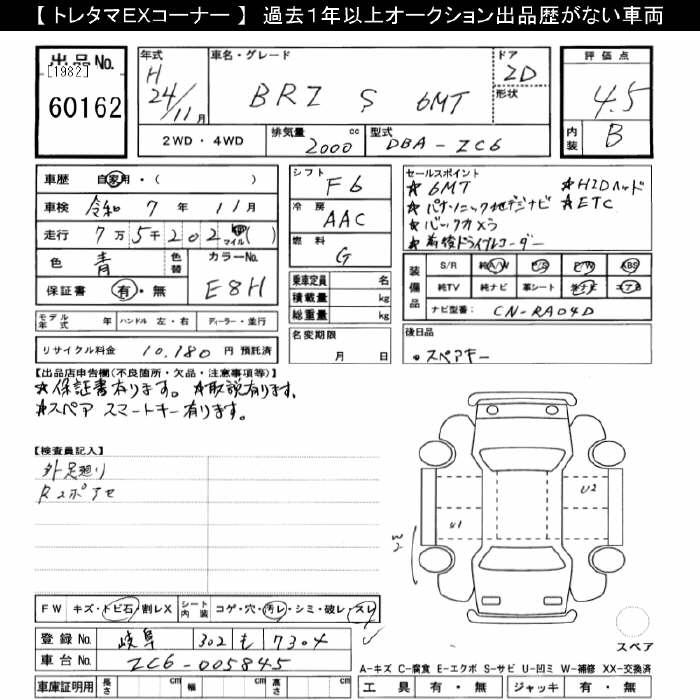 【 トレタマEXコーナー 】 過去1年以上オークション出品歴がない車両
出品No.
[1982]
60162
年式
H
24/11月
車名・グレード
BRZ S 6MT
ドア
2D
形状
評価点
4.5
内装
B
2WD・4WD
排気量 2000 cc
型式 DBA-ZC6
車歴 自家用・( )
車検 令和 7年 11月
走行 7万5千202 マイル( )
色 青
色替
カラーNo.
E8H
保証書 有・無
シフト F6
冷房 AAC
燃料 G
セールスポイント
★6MT
★HIDヘッド
★パナソニック地デジナビ
★ETC
★バックカメラ
★前後ドライブレコーダー
装備品
S/R 純A/W P/S P/W ABS
純TV 純ナビ 革シート 社ナビ エアB
ナビ型番: CN-RA04D
乗車定員 名
積載量 kg
総重量 kg
モデル年式 年
ハンドル 左・右
ディーラー・並行
リサイクル料金 10,180 円 預託済
名変期限
月 日
後日品
・スペアキー
【出品店申告欄(不良箇所・欠品・注意事項等)】
★保証書有ります。★取説有ります。
★スペア スマートキー有ります。
【検査員記入】
外足廻り
Rスポアセ
U1
U2
W2
FW キズ・トビ石・割レX
シート内装 コゲ・穴・汚レ・シミ・破レ・スレ
登録No. 岐阜 302 も 7304
車台No. ZC6-005845
スペア
A-キズ C-腐食 E-エクボ S-サビ U-凹ミ W-補修 XX-交換済
車庫証明用 長さ cm 幅 cm 高さ cm
工具 有・無
ジャッキ 有・無